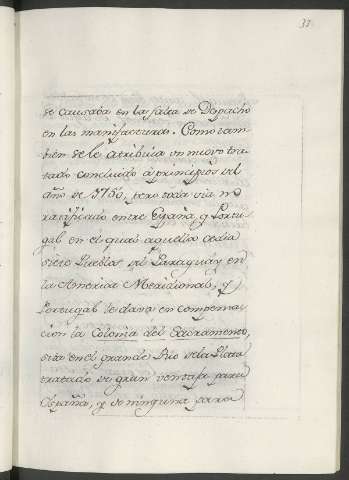 37.
se causaba en la falta de Despacho
en las manifacturas. Como tam-
bien se le atribuia un nuevo tra-
tado concluido á principios del
año de 1750, pero toda via no
ratificado entre España, y Portu-
gal, en el qual aquella cedia
siete Pueblos del Paraguay en
la America Meridional, y
Portugal le daba en compensa-
cion la Colonia del Sacramento,
sita en el grande Rio de la Plata
tratado de gran ventaja para
España, y de ninguna para